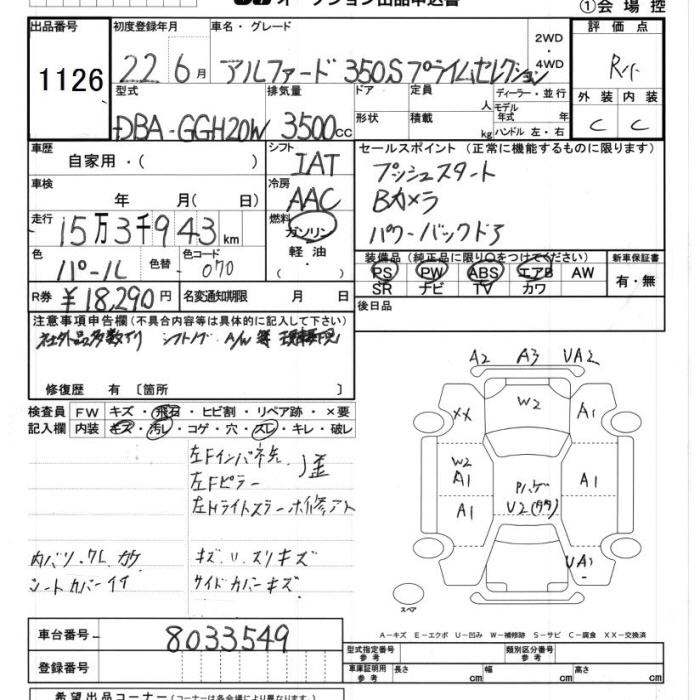 ①会場控
出品番号 初度登録年月 車名・グレード 2WD ・ 4WD 評価点
1126 22 6月 アルファード 350S プライムセレクション
型式 排気量 ドア 定員 人 ディーラー・並行 外装 内装
DBA-GGH20W 3500cc 形状 積載 kg モデル年式 年 ハンドル 左・右 C C
車歴 自家用・( ) シフト IAT セールスポイント (正常に機能するものに限ります)
車検 年 月( 日) 冷房 AAC プッシュスタート
Bカメラ
走行 15万3千943km 燃料 ガソリン 軽油 ( ・ ) パワーバックドア
色 パール 色替 色コード 070 装備品(純正品に限り○をつけてください) 新車保証書
PS PW ABS エアB AW 有・無
SR ナビ TV カワ
R券 ¥18,290円 名変通知期限 月 日 後日品
注意事項申告欄(不具合内容等は具体的に記入して下さい)
社外品多数有り シフトノブ A/W 等
修復歴 有 〔箇所 〕
検査員記入欄 FW キズ・飛石・ヒビ割・リペア跡・×要
内装 キズ・汚レ・コゲ・穴・スレ・キレ・破レ
左Fインパネ先
左Fピラー
左Hライトステー ホ修アト
内バリ、クレ カケ キズ、U、スリキズ
シートカバーイイ サイドカバーキズ
A2 A3 UA2
XX W2 A1
W2 A1 A1
A1 U2(内)
UA1
スペア
A-キズ E-エクボ U-凹み W-補修跡 S-サビ C-腐食 XX-交換済
車台番号 8033549 型式指定番号 参考 類別区分番号 参考
登録番号 車庫証明用 参考 長さ cm 幅 cm 高さ cm
希望出品コーナー